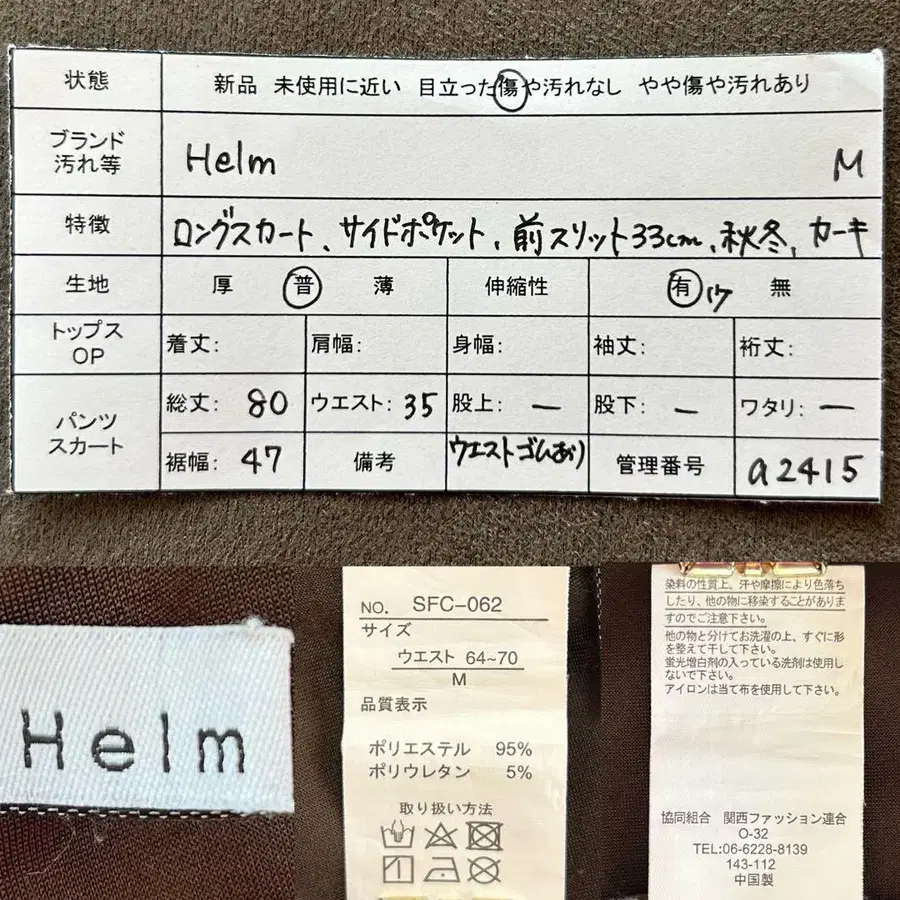 状態 新品 未使用に近い 目立った傷や汚れなし やや傷や汚れあり
ブランド
汚れ等 Helm M
特徴 ロングスカート、サイドポケット、前スリット33cm、秋冬、カーキ
生地 厚 普 薄 伸縮性 有 無
トップス
OP 着丈: 肩幅: 身幅: 袖丈: 裄丈:
パンツ
スカート 総丈: 80 ウエスト: 35 股上: ー 股下: ー ワタリ: ー
裾幅: 47 備考 ウエストゴムあり 管理番号 a2415
Helm
NO. SFC-062
サイズ
ウエスト 64~70
M
品質表示
ポリエステル 95%
ポリウレタン 5%
取り扱い方法
染料の性質上、汗や摩擦により色落ち
したり、他の物に移染することがありま
すのでご注意下さい。
他の物と分けてお洗濯の上、すぐに形
を整えて干して下さい。
蛍光増白剤の入っている洗剤は使用し
ないで下さい。
アイロンは当て布を使用して下さい。
協同組合 関西ファッション連合
O-32
TEL:06-6228-8139
143-112
中国製